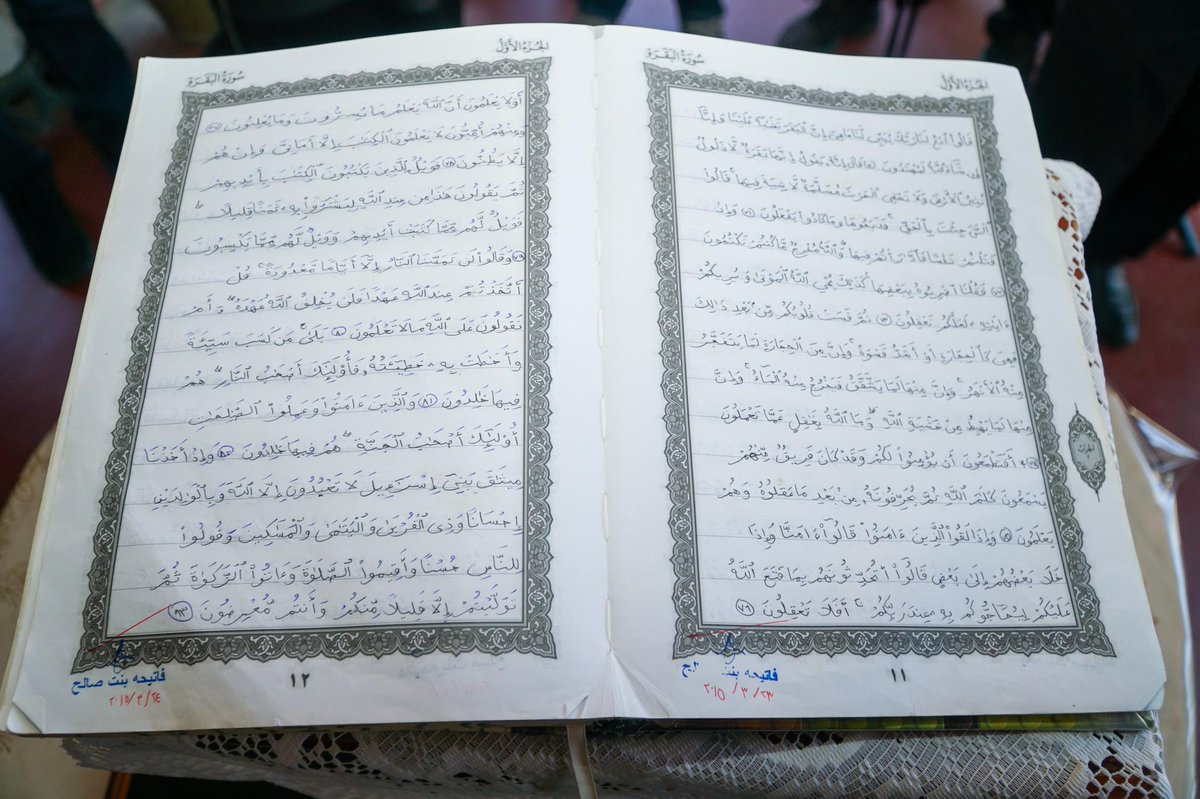 سُورَةُ البَقَرَة
الجُزءُ الأَوَّل
قَالُوا ٱدْعُ لَنَا رَبَّكَ يُبَيِّن لَّنَا مَا هِيَ إِنَّ ٱلْبَقَرَ تَشَٰبَهَ عَلَيْنَا وَإِنَّآ
إِن شَآءَ ٱللَّهُ لَمُهْتَدُونَ ٧٠ قَالَ إِنَّهُۥ يَقُولُ إِنَّهَا بَقَرَةٌ لَّا ذَلُولٌ
تُثِيرُ ٱلْأَرْضَ وَلَا تَسْقِي ٱلْحَرْثَ مُسَلَّمَةٌ لَّا شِيَةَ فِيهَا ۚ قَالُوا
ٱلْـَٰٔنَ جِئْتَ بِٱلْحَقِّ ۚ فَذَبَحُوهَا وَمَا كَادُوا يَفْعَلُونَ ٧١ وَإِذْ
قَتَلْتُمْ نَفْسًا فَٱدَّٰرَٰٔتُمْ فِيهَا ۖ وَٱللَّهُ مُخْرِجٌ مَّا كُنتُمْ تَكْتُمُونَ
٧٢ فَقُلْنَا ٱضْرِبُوهُ بِبَعْضِهَا ۚ كَذَٰلِكَ يُحْيِ ٱللَّهُ ٱلْمَوْتَىٰ وَيُرِيكُمْ
ءَايَٰتِهِۦ لَعَلَّكُمْ تَعْقِلُونَ ٧٣ ثُمَّ قَسَتْ قُلُوبُكُم مِّنۢ بَعْدِ ذَٰلِكَ
فَهِيَ كَٱلْحِجَارَةِ أَوْ أَشَدُّ قَسْوَةً ۚ وَإِنَّ مِنَ ٱلْحِجَارَةِ لَمَا يَتَفَجَّرُ
مِنْهُ ٱلْأَنْهَٰرُ ۚ وَإِنَّ مِنْهَا لَمَا يَشَّقَّقُ فَيَخْرُجُ مِنْهُ ٱلْمَآءُ ۚ وَإِنَّ
مِنْهَا لَمَا يَهْبِطُ مِنْ خَشْيَةِ ٱللَّهِ ۗ وَمَا ٱللَّهُ بِغَٰفِلٍ عَمَّا تَعْمَلُونَ
٧٤ ۞ أَفَتَطْمَعُونَ أَن يُؤْمِنُوا لَكُمْ وَقَدْ كَانَ فَرِيقٌ مِّنْهُمْ
يَسْمَعُونَ كَلَٰمَ ٱللَّهِ ثُمَّ يُحَرِّفُونَهُۥ مِنۢ بَعْدِ مَا عَقَلُوهُ وَهُمْ
يَعْلَمُونَ ٧٥ وَإِذَا لَقُوا ٱلَّذِينَ ءَامَنُوا قَالُوٓا ءَامَنَّا وَإِذَا
خَلَا بَعْضُهُمْ إِلَىٰ بَعْضٍ قَالُوٓا أَتُحَدِّثُونَهُم بِمَا فَتَحَ ٱللَّهُ
عَلَيْكُمْ لِيُحَآجُّوكُم بِهِۦ عِندَ رَبِّكُمْ ۚ أَفَلَا تَعْقِلُونَ ٧٦
١١
٢٠١٥/٣/٢٣
الجُزءُ الأَوَّل
سُورَةُ البَقَرَة
أَوَلَا يَعْلَمُونَ أَنَّ ٱللَّهَ يَعْلَمُ مَا يُسِرُّونَ وَمَا يُعْلِنُونَ ٧٧
وَمِنْهُمْ أُمِّيُّونَ لَا يَعْلَمُونَ ٱلْكِتَٰبَ إِلَّآ أَمَانِيَّ وَإِنْ هُمْ
إِلَّا يَظُنُّونَ ٧٨ فَوَيْلٌ لِّلَّذِينَ يَكْتُبُونَ ٱلْكِتَٰبَ بِأَيْدِيهِمْ
ثُمَّ يَقُولُونَ هَٰذَا مِنْ عِندِ ٱللَّهِ لِيَشْتَرُوا بِهِۦ ثَمَنًا قَلِيلًا ۖ
فَوَيْلٌ لَّهُم مِّمَّا كَتَبَتْ أَيْدِيهِمْ وَوَيْلٌ لَّهُم مِّمَّا يَكْسِبُونَ
٧٩ وَقَالُوا لَن تَمَسَّنَا ٱلنَّارُ إِلَّآ أَيَّامًا مَّعْدُودَةً ۚ قُلْ
أَتَّخَذْتُمْ عِندَ ٱللَّهِ عَهْدًا فَلَن يُخْلِفَ ٱللَّهُ عَهْدَهُۥٓ ۖ أَمْ
تَقُولُونَ عَلَى ٱللَّهِ مَا لَا تَعْلَمُونَ ٨٠ بَلَىٰ مَن كَسَبَ سَيِّئَةً
وَأَحَٰطَتْ بِهِۦ خَطِيٓـَٔتُهُۥ فَأُولَٰٓئِكَ أَصْحَٰبُ ٱلنَّارِ ۖ هُمْ
فِيهَا خَٰلِدُونَ ٨١ وَٱلَّذِينَ ءَامَنُوا وَعَمِلُوا ٱلصَّٰلِحَٰتِ
أُولَٰٓئِكَ أَصْحَٰبُ ٱلْجَنَّةِ ۖ هُمْ فِيهَا خَٰلِدُونَ ٨٢ وَإِذْ أَخَذْنَا
مِيثَٰقَ بَنِيٓ إِسْرَٰٓءِيلَ لَا تَعْبُدُونَ إِلَّا ٱللَّهَ وَبِٱلْوَٰلِدَيْنِ
إِحْسَانًا وَذِي ٱلْقُرْبَىٰ وَٱلْيَتَٰمَىٰ وَٱلْمَسَٰكِينِ وَقُولُوا
لِلنَّاسِ حُسْنًا وَأَقِيمُوا ٱلصَّلَوٰةَ وَءَاتُوا ٱلزَّكَوٰةَ ثُمَّ
تَوَلَّيْتُمْ إِلَّا قَلِيلًا مِّنكُمْ وَأَنتُم مُّعْرِضُونَ ٨٣
١٢
فاتيحه بنت صالح
٢٠١٥/٣/٢٤